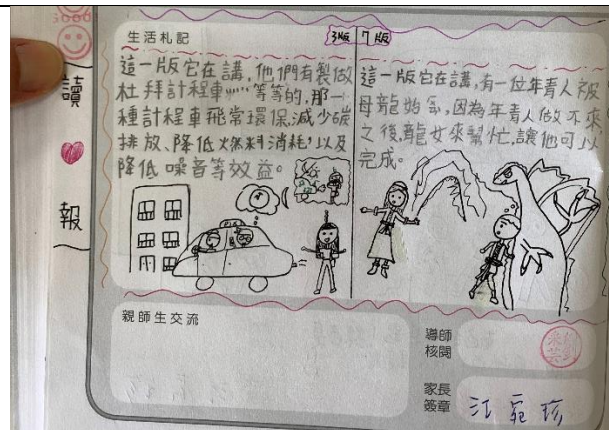 讀
報
生活札記
3版
7版
這一版它在講,他們有製做
杜拜計程車……等等的,那一
種計程車飛常環保,減少碳
排放、降低燃料消耗,以及
降低噪音等效益。
這一版它在講,有一位年青人被
母龍
因為年青人做不來
之後,龍女來幫忙,讓他可以
完成。
TAXI
親師生交流
導師
核閱
家長
簽章